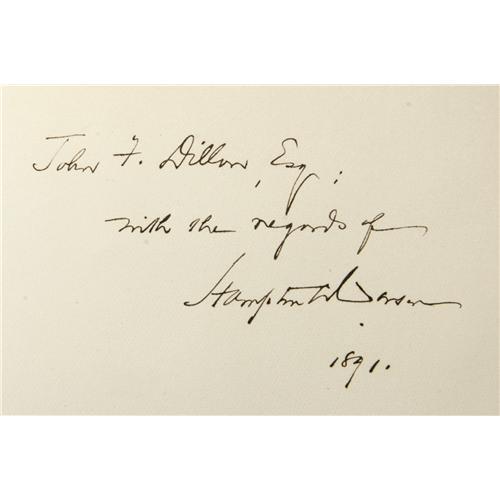 John F. Dillon, Esq;
with the regards of
Hampton L. Carson
1891.